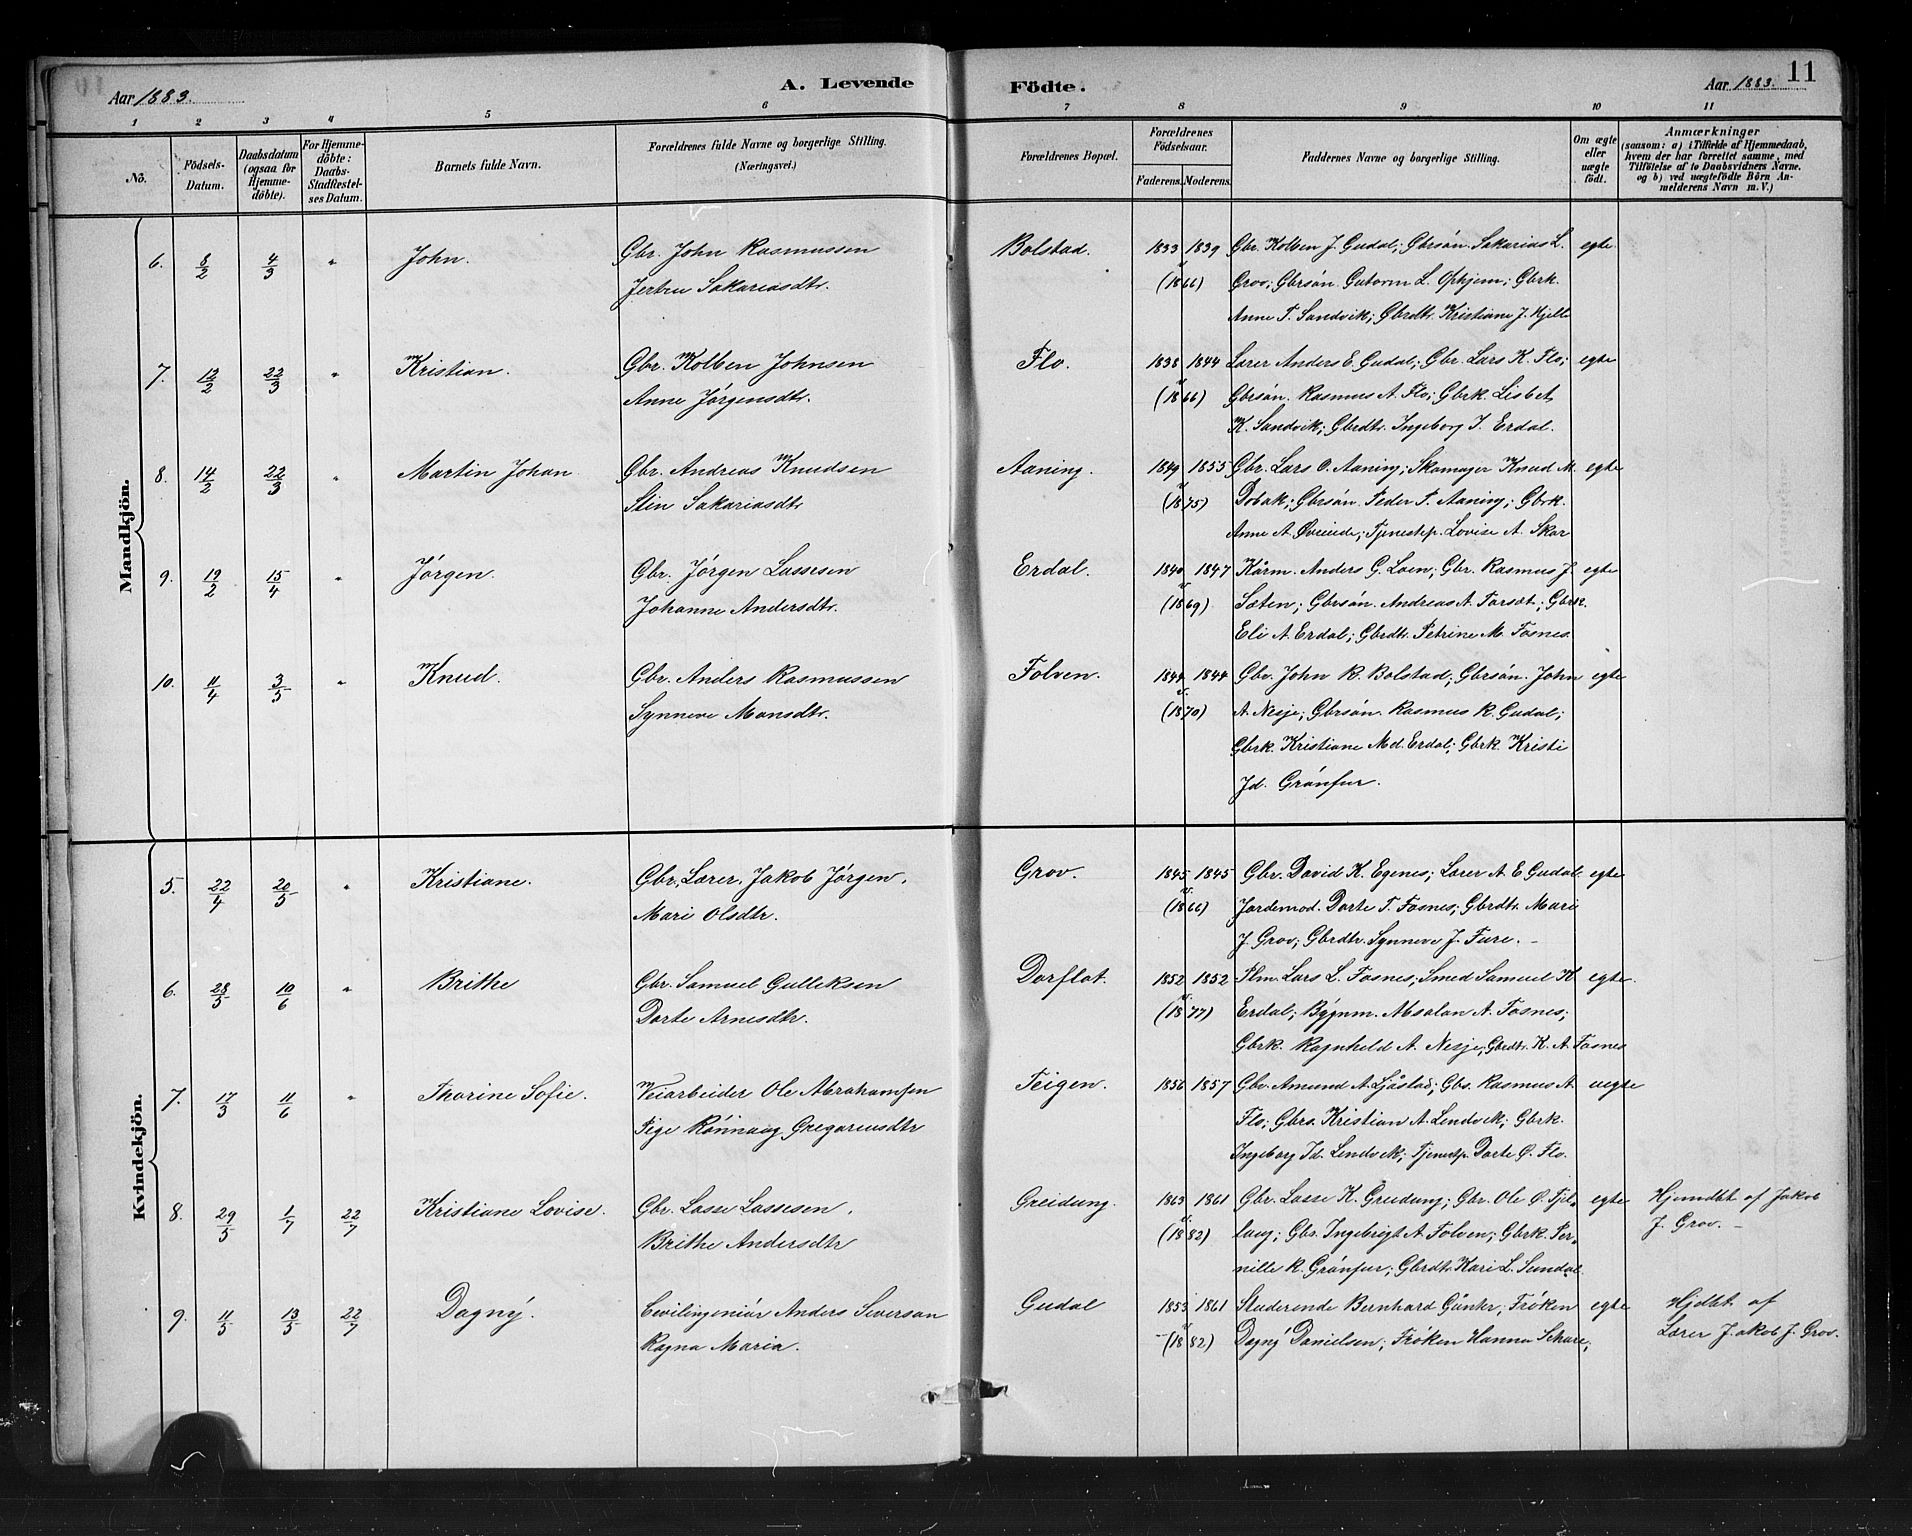 Aar 1883.
A. Levende
Födte.
Aar 1883.
11
1 2 3 4 5 6 7 8 9 10 11
No.
Födsels-
Datum.
Daabsdatum
(ogsaa for
Hjemme-
döbte).
For Hjemme-
döbte:
Daabs-
Stadfæstel-
ses Datum.
Barnets fulde Navn.
Forældrenes fulde Navne og borgerlige Stilling.
(Næringsvei.)
Forældrenes Bopæl.
Forældrenes
Födselsaar.
Faderens. Moderens.
Faddernes Navne og borgerlige Stilling.
Om ægte
eller
uægte
födt.
Anmærkninger
(saasom: a) i Tilfælde af Hjemmedaab,
hvem der har forrettet samme, med
Tilföielse af to Daabsvidners Navne.
og b) ved uægtefödte Börn An-
melderens Navn m. V.)
Mandkjön.
6. 8/2 4/3 " John. Gbr. John Rasmussen Bolstad. 1833 1839 Gbr. Kolben J. Gudal; Gbrsön. Sakarias L. egte
Jertru Sakariasdtr. (1866) Grov; Gbrsön. Gutorm L. Ophjem; Gbrk.
Anne P. Sandvik; Gbrdtr. Kristiane J. Hjelle
7. 12/2 22/3 " Kristian. Gbr. Kolben Johnsen Flo. 1838 1844 Lærer Anders E. Gudal; Gbr. Lars K. Flo; egte
Anne Jørgensdtr. (1866) Gbrsön. Rasmus A. Flo; Gbrk. Lisbet
K. Sandvik; Gbrdtr. Ingeborg J. Erdal.
8. 14/2 22/3 " Martin Johan. Gbr. Andreas Knudsen Aaning. 1849 1855 Gbr. Lars O. Aaning; Skomager Knud M. egte
Stin Sakariasdtr (1875) Dobak; Gbrsön. Peder P. Aaning; Gbrk.
Anne A. Øvreide; Tjenestp. Lovise A. Skar
9. 19/2 15/4 " Jørgen. Gbr. Jørgen Lassesen Erdal. 1840 1847 Kårm. Anders G. Loen; Gbr. Rasmus J. egte
Johanne Andersdtr. (1869) Sæten; Gbrsön. Andreas A. Torsæt; Gbrk.
Eli A. Erdal; Gbrdtr. Petrine M. Fosnes
10. 11/4 3/5 " Knud. Gbr. Anders Rasmussen Folven. 1844 1844 Gbr. John R. Bolstad; Gbrsön. John egte
Synneve Monsdtr. (1870) A. Nesje; Gbrsön. Rasmus R. Gudal;
Gbrk. Kristiane Md. Erdal; Gbrk. Kristi
Jd. Grönfur.
Kvindekjön.
5. 22/4 20/5 " Kristiane. Gbr. Lærer. Jakob Jørgen. Grov. 1845 1845 Gbr. David K. Egenes; Lærer A E Gudal egte
Mari Olsdtr. (1866) Jordemod. Dorte T. Fosnes; Gbrdtr. Mari
J. Grov; Gbrdtr. Synneve J. Fure. –
6. 28/5 10/6 " Brithe Gbr. Samuel Gulleksen Dorflot. 1852 1852 Flm. Lars L. Fosnes; Smed Samuel K egte.
Dorte Arnesdtr. (1877) Erdal; Bygnm. Absalon A. Fosnes;
Gbrk. Ragnheld A. Nesje; Gbrdtr. K. A. Fosnes
7. 17/3 11/6 " Thorine Sofie. Veiarbeider Ole Abrahamsen Teigen. 1856 1857 Gbr. Amund A. Ljåstad; Gbs. Rasmus A. uegte
Pige Rönnaug Gregoriusdtr Flo; Gbrs. Kristian A. Lendvik; Gbrk.
Ingeborg Jd. Lendvik; Tjenestp. Dorte Ø. Flo.
8. 29/5 1/7 22/7 Kristiane Lovise. Gbr. Lasse Lassesen. Greidung. 1863 1861 Gbr. Lasse K. Greidung; Gbr. Ole Ø. Fjel- egte Hjemdbt af Jakob
Brithe Andersdtr (1882) laug; Gbs. Ingebrigt A. Folven; Gbrk. Per- J. Grov. –
nille R. Grönfur; Gbrdtr. Kari L. Sundal
9. 11/5 13/5 22/7 Dagny. Cevilingeniör Anders Severson Gudal 1853 1861 Studerende Bernhard Günter, Frøken egte Hjdbt af
Ragna Maria. (1882) Dagny Danielsen; Frøken Hanna Schare, Lærer Jakob J. Grov.